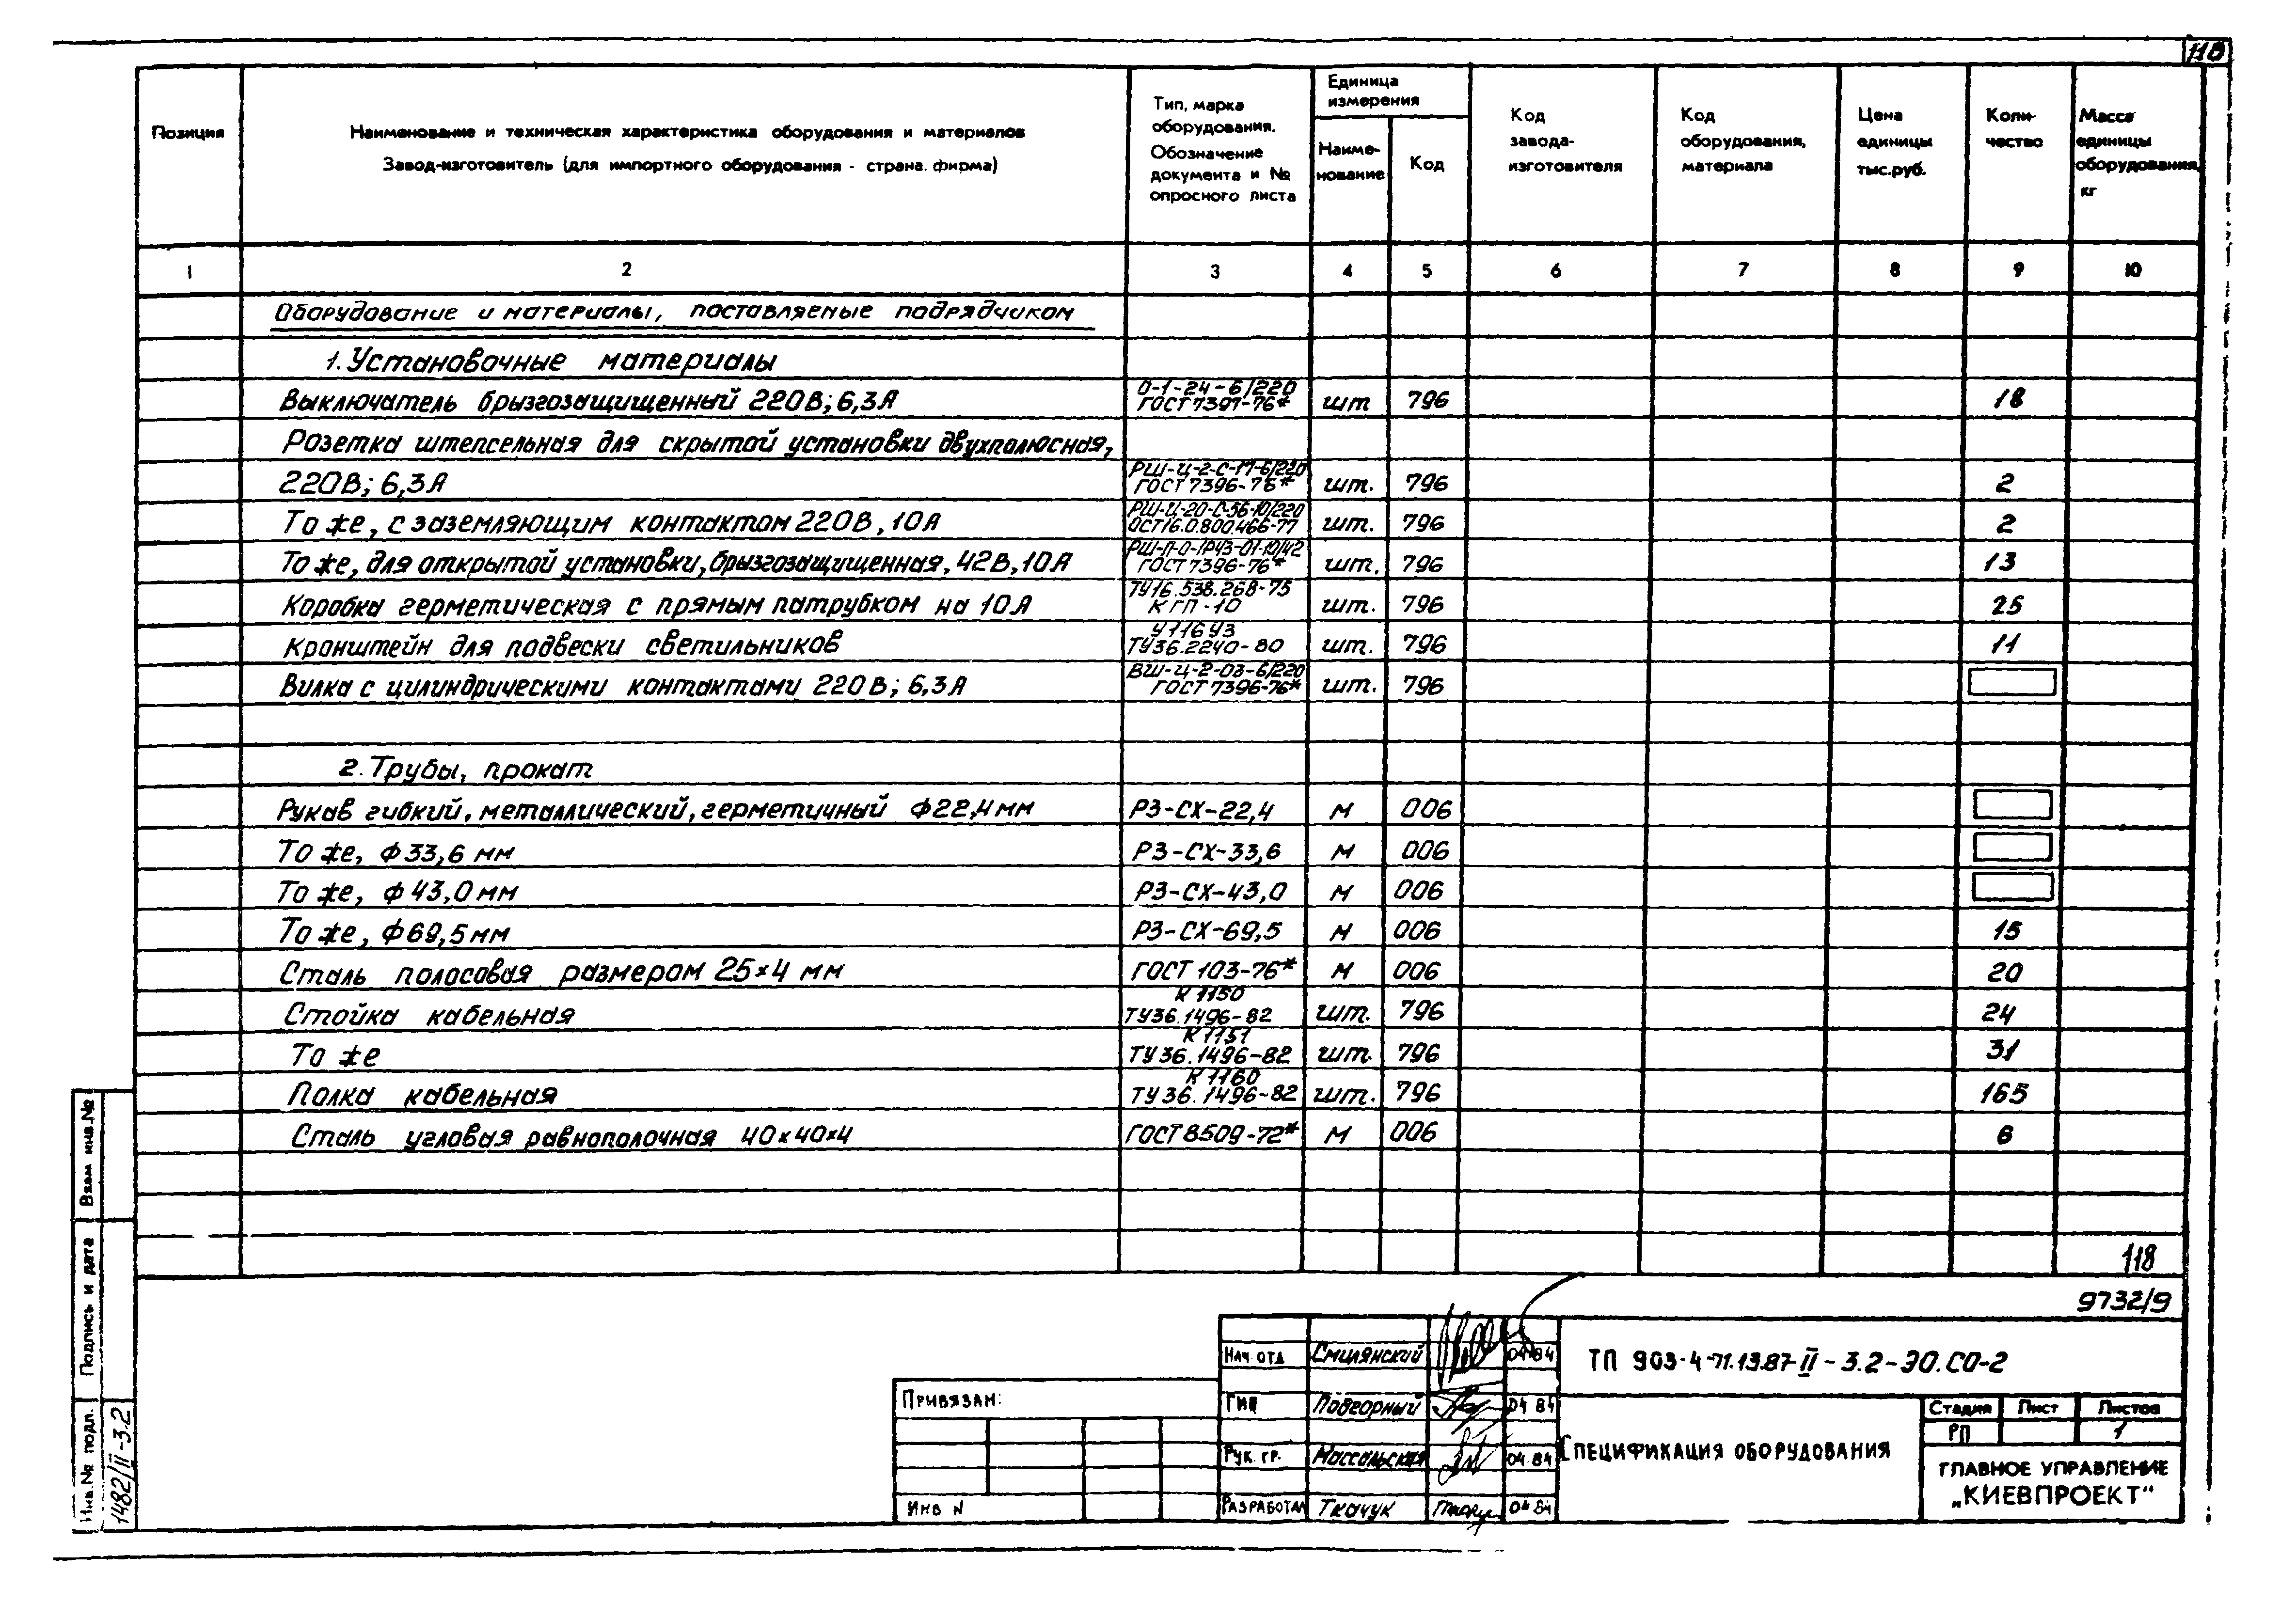 118
Позиция
Наименование и техническая характеристика оборудования и материалов
Завод-изготовитель (для импортного оборудования - страна. фирма)
Тип, марка
оборудования.
Обозначение
документа и №
опросного листа
Единица
измерения
Наиме-
нование
Код
Код
завода-
изготовителя
Код
оборудования,
материала
Цена
единицы
тыс.руб.
Коли-
чество
Масса
единицы
оборудования,
кг
1 2 3 4 5 6 7 8 9 10
Оборудование и материалы, поставляемые подрядчиком
1. Установочные материалы
О-1-24-6/220
Выключатель брызгозащищенный 220В; 6,3А ГОСТ 7397-76* шт 796 18
Розетка штепсельная для скрытой установки двухполюсная,
РШ-Ц-2-С-17-6/220
220В; 6,3А ГОСТ 7396-76* шт. 796 2
РШ-Ц-20-С-56-10/220
То же, с заземляющим контактом 220В, 10А ОСТ16.0.800.466-77 шт. 796 2
РШ-П-О-IР43-01-10/42
То же, для открытой установки, брызгозащищенная, 42В, 10А ГОСТ 7396-76* шт. 796 13
ТУ16.538.268-75
Коробка герметическая с прямым патрубком на 10А КГП-10 шт. 796 25
У116У3
Кронштейн для подвески светильников ТУ36.2240-80 шт. 796 11
ВШ-Ц-2-03-6/220
Вилка с цилиндрическими контактами 220В; 6,3А ГОСТ 7396-76* шт. 796
2. Трубы, прокат
Рукав гибкий, металлический, герметичный ф22,4мм РЗ-СХ-22,4 м 006
То же, ф33,6 мм РЗ-СХ-33,6 м 006
То же, ф43,0мм РЗ-СХ-43,0 м 006
То же, ф69,5мм РЗ-СХ-69,5 м 006 15
Сталь полосовая размером 25×4 мм ГОСТ 103-76* м 006 20
К 1150
Стойка кабельная ТУ36.1496-82 шт. 796 24
К 1151
То же ТУ36.1496-82 шт. 796 31
К 1160
Полка кабельная ТУ36.1496-82 шт. 796 165
Сталь угловая равнополочная 40×40×4 ГОСТ 8509-72* м 006 6
118
9732/9
Взам. инв.№
Подпись и дата
Инв.№ подл.
1482/II-3.2
Привязан:
Инв N
Нач. отд Смилянский 04 84
ГИП Подгорный 04 84
Рук. гр. Массальская 04.84
Разработал Ткачук 04 84
ТП 903-4-71.13.87-II-3.2-ЭО.СО-2
Спецификация оборудования
Стадия Лист Листов
РП 1
ГЛАВНОЕ УПРАВЛЕНИЕ
„КИЕВПРОЕКТ"